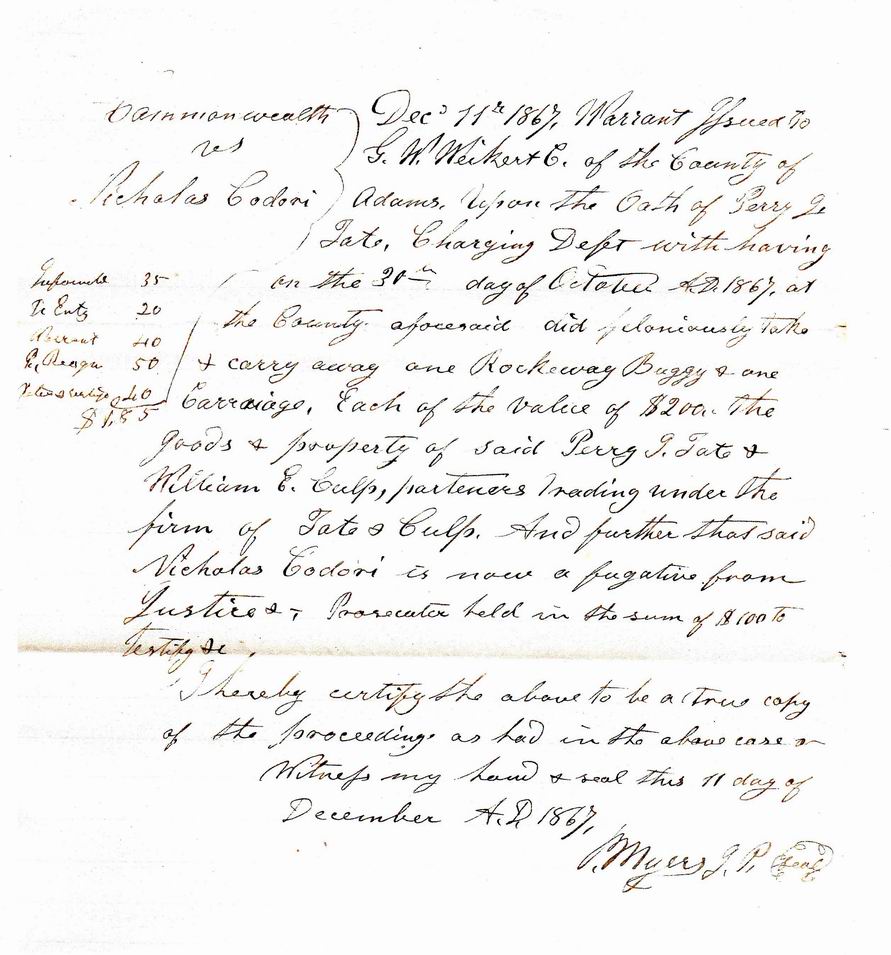 Commonwealth
vs
Nicholas Codori
Decr 11th 1867, Warrant Issued to
G. W. Weikert C. of the County of
Adams, Upon the Oath of Perry J.
Tate, Charging Deft with having
on the 30th day of October A.D. 1867, at
the County aforesaid did feloniously take
& carry away one Rockeway Buggy & one
Carraiage, Each of the value of $200. the
goods & property of said Perry J. Tate &
William E. Culp, parteners Trading under the
firm of Tate & Culp. And further that said
Nicholas Codori is now a fugative from
Justice &, Prosecuter held in the sum of $100 to
testify &c.
35
Entg 20
Warrant 40
Recogn 50
40
$1,85
I hereby certify the above to be a true copy
of the proceedings as had in the above case
Witness my hand & seal this 11 day of
December A.D. 1867,
Myers J. P. Seal